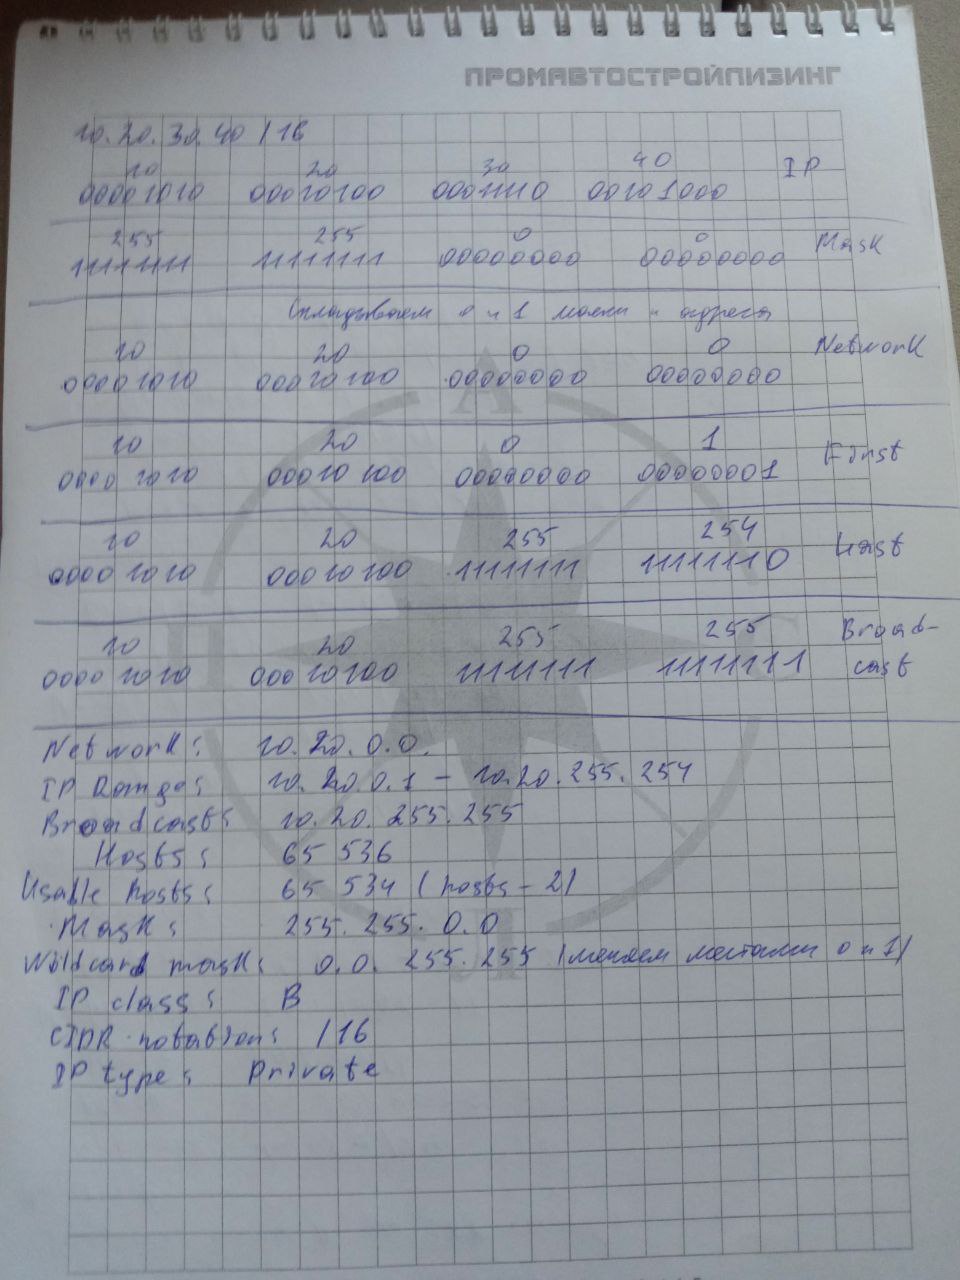 ПРОМАВТОСТРОЙЛИЗИНГ
10.20.30.40 /16
10 20 30 40 IP
00001010 00010100 00011110 00101000
255 255 0 0 Mask
11111111 11111111 00000000 00000000
Складываем 0 и 1 маски и адреса
10 20 0 0 Network
00001010 00010100 00000000 00000000
10 20 0 1 First
00001010 00010100 00000000 00000001
10 20 255 254 Last
00001010 00010100 11111111 11111110
10 20 255 255 Broad-
00001010 00010100 11111111 11111111 cast
Network: 10.20.0.0.
IP Range: 10.20.0.1 - 10.20.255.254
Broadcast: 10.20.255.255
Hosts: 65 536
Usable hosts: 65 534 (hosts - 2)
Mask: 255.255.0.0
Wildcard mask: 0.0.255.255 (меняем местами 0 и 1)
IP class: B
CIDR notation: /16
IP type: Private